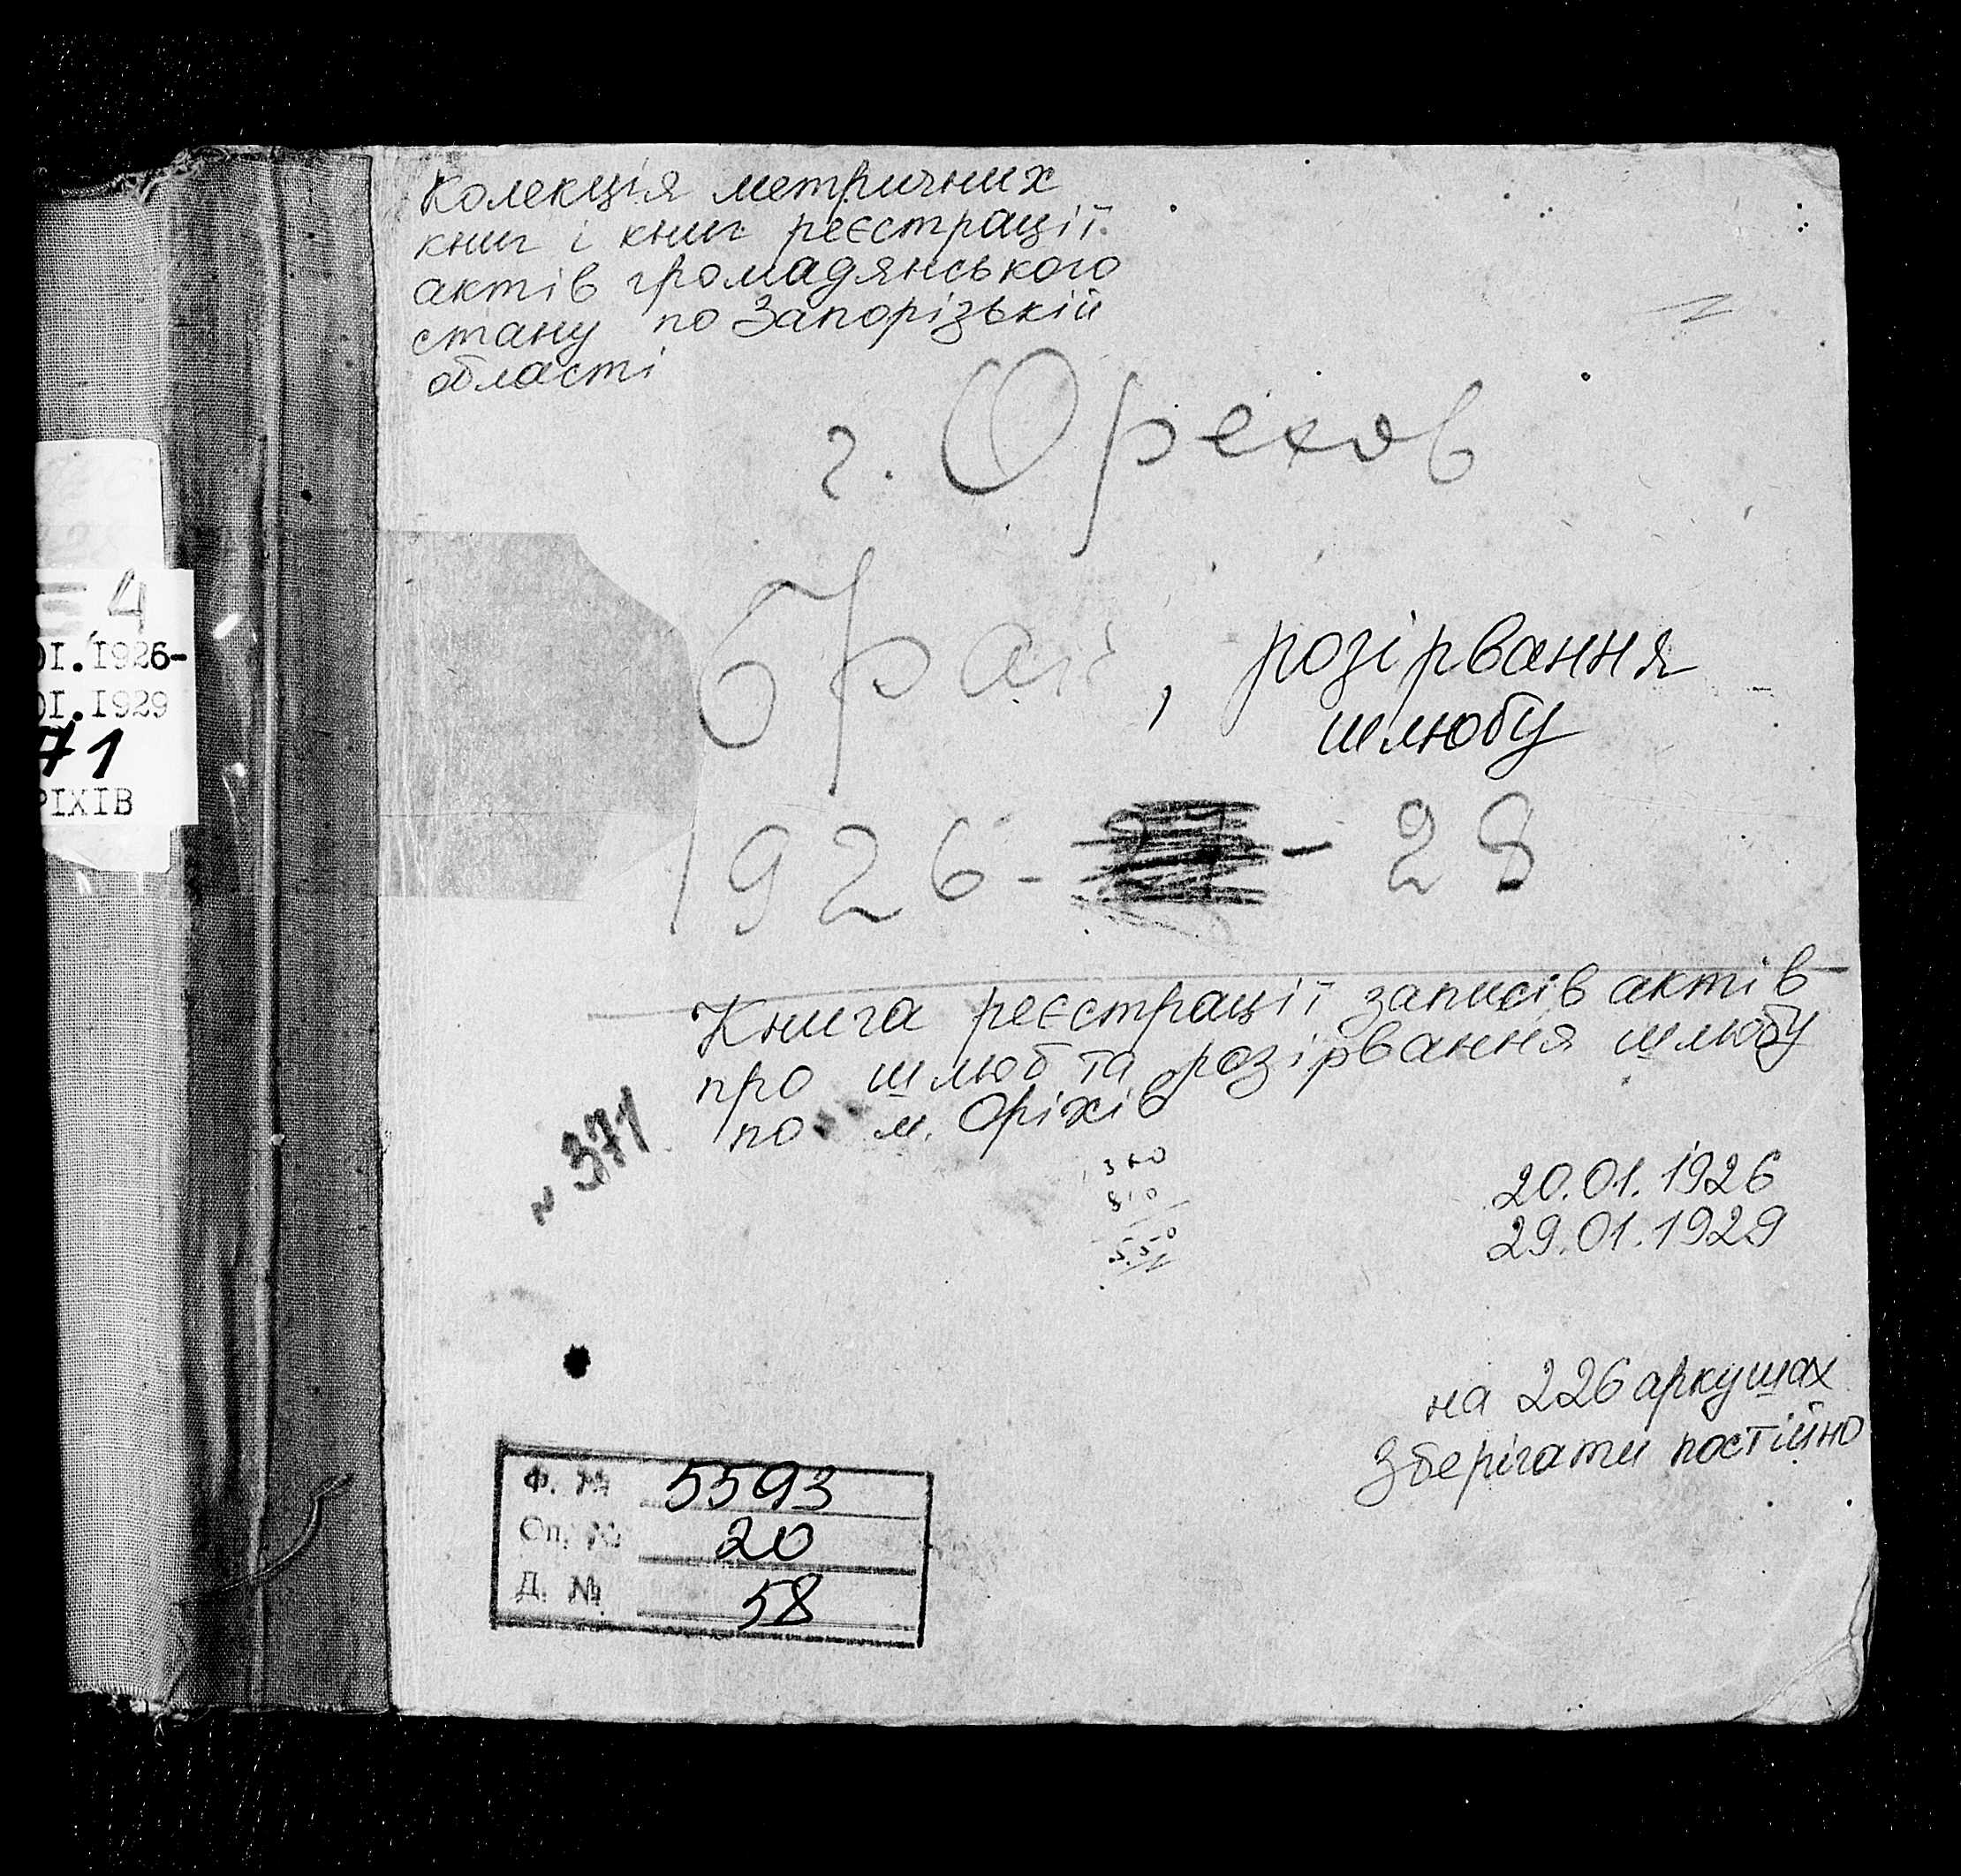 Колекція метричних
книг і книг реєстрації
актів громадянського
стану по Запорізькій
області
г. Орехов
брак, розірвання
шлюбу
1926- - 28
4
01.1926-
01.1929
71
РІХІВ
Книга реєстрації записів актів
про шлюб та розірвання шлюбу
по м. Оріхів
№ 371
20.01.1926
29.01.1929
на 226 аркушах
Зберігати постійно
Ф. № 5593
Оп. № 20
Д. № 58